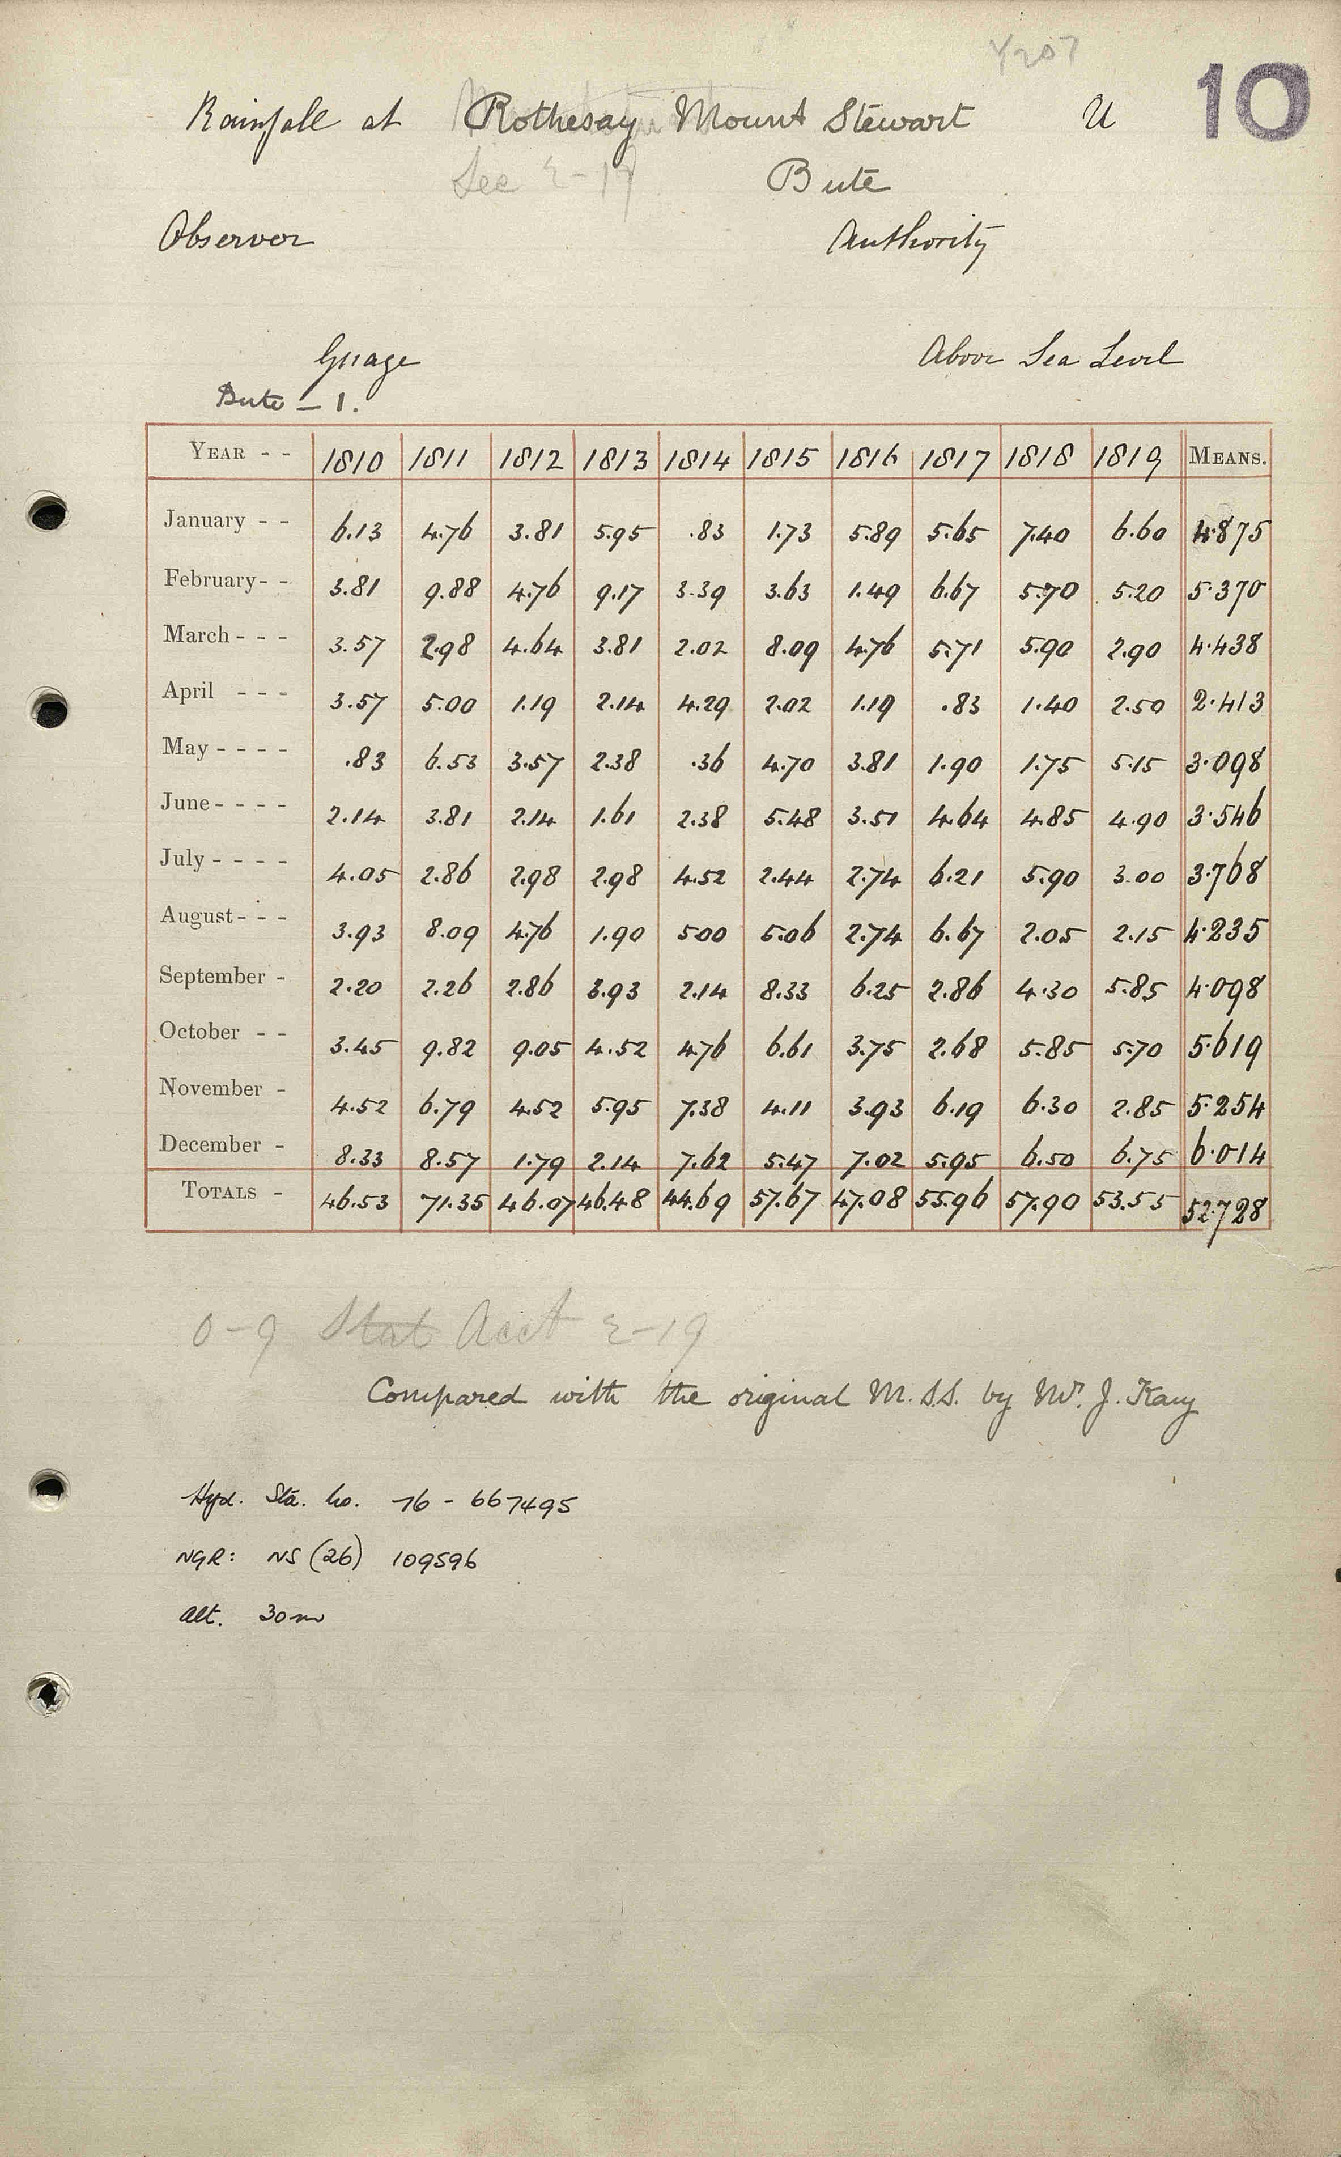 Y207
10
Rainfall at Rothesay Mount Stewart U
See 2-19 Bute
Observer Authority
Guage Above Sea Level
Bute - 1.
YEAR - - 1810 1811 1812 1813 1814 1815 1816 1817 1818 1819 MEANS.
January - - 6.13 4.76 3.81 5.95 .83 1.73 5.89 5.65 7.40 6.60 4.875
February - - 3.81 9.88 4.76 9.17 3.39 3.63 1.49 6.67 5.70 5.20 5.370
March - - - 3.57 2.98 4.64 3.81 2.02 8.09 4.76 5.71 5.90 2.90 4.438
April - - - 3.57 5.00 1.19 2.14 4.29 2.02 1.19 .83 1.40 2.50 2.413
May - - - - .83 6.53 3.57 2.38 .36 4.70 3.81 1.90 1.75 5.15 3.098
June - - - - 2.14 3.81 2.14 1.61 2.38 5.48 3.51 4.64 4.85 4.90 3.546
July - - - - 4.05 2.86 2.98 2.98 4.52 2.44 2.74 6.21 5.90 3.00 3.768
August - - - 3.93 8.09 4.76 1.90 5.00 5.06 2.74 6.67 2.05 2.15 4.235
September - 2.20 2.26 2.86 3.93 2.14 8.33 6.25 2.86 4.30 5.85 4.098
October - - 3.45 9.82 9.05 4.52 4.76 6.61 3.75 2.68 5.85 5.70 5.619
November - 4.52 6.79 4.52 5.95 7.38 4.11 3.93 6.19 6.30 2.85 5.254
December - 8.33 8.57 1.79 2.14 7.62 5.47 7.02 5.95 6.50 6.75 6.014
TOTALS - 46.53 71.35 46.07 46.48 44.69 57.67 47.08 55.96 57.90 53.55 52.728
0-9 Stat Acct 2-19
Compared with the original M.S.S. by Mr. J. Kay
Hyd. Sta. no. 76 - 667495
NGR: NS (26) 109596
alt. 30m